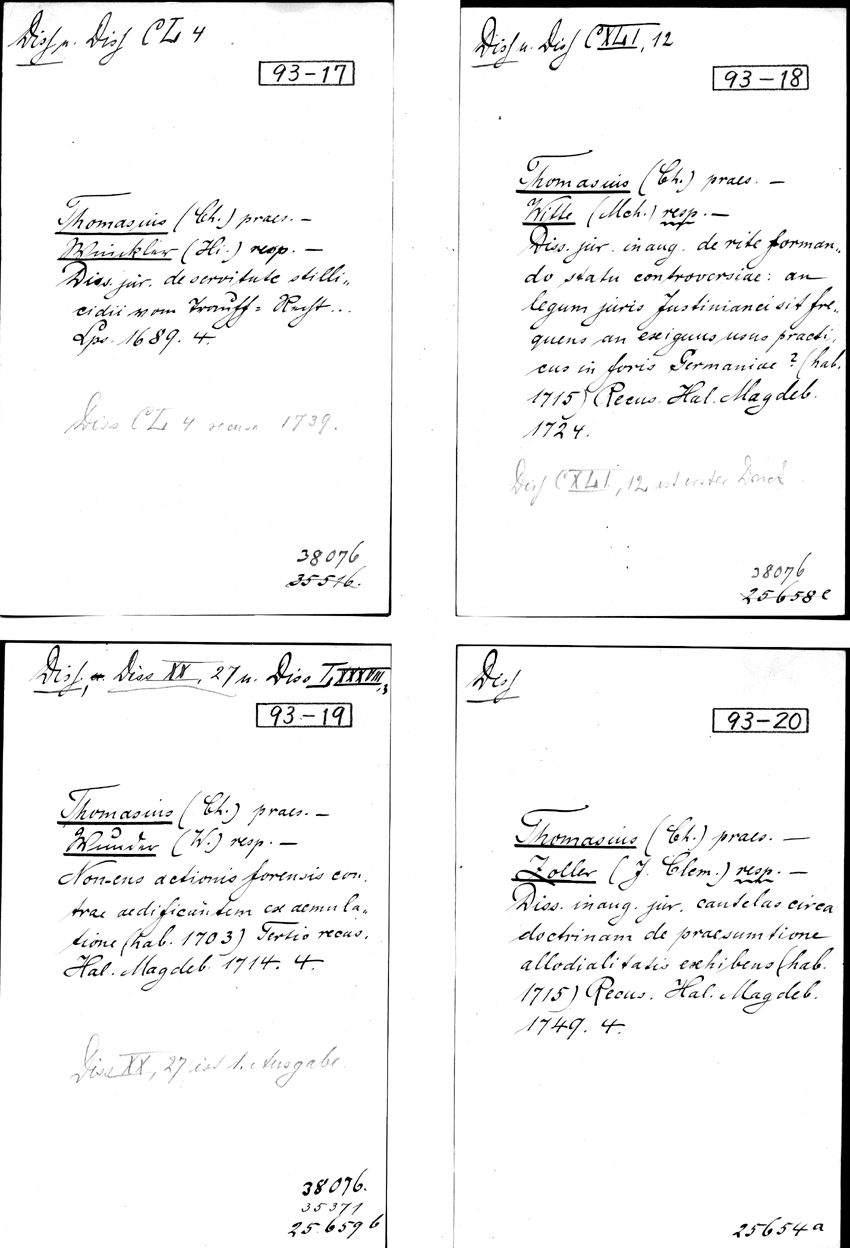 Diss u. Diss CL 4
93-17
Thomasius (Ch.) praes. —
Winckler (Hi.) resp. —
Diss. jur. de servitute stilli„
cidii vom Trauff= Recht...
Lps. 1689. 4.
Diss CL 4 recusa 1739.
38076
35516.
Diss u. Diss CXLI, 12
93-18
Thomasius (Ch.) praes. —
Witte (Mch.) resp. —
Diss. jur. inaug. de rite forman„
do statu controversiae: an
legum juris Justinianei sit fre„
quens an exiguus usus practi„
cus in foris Germaniae? (hab.
1715) Recus. Hal. Magdeb.
1724.
Diss CXLI, 12 ist erster Druck.
38076
25658 c
Diss, Diss XX, 27 u. Diss LXXXVIII,3
93-19
Thomasius (Ch.) praes. —
Wunder (W.) resp. —
Non-ens actionis forensis con„
trae aedificantem ex aemula„
tione (hab. 1703) Tertio recus.
Hal. Magdeb. 1714. 4.
Diss XX, 27 ist 1. Ausgabe.
38076.
35371
25659 b
Diss
93-20
Thomasius (Ch.) praes. —
Zoller (J. Clem.) resp. —
Diss. inaug. jur. cautelas circa
doctrinam de praesumtione
allodialitatis exhibens (hab.
1715) Recus. Hal. Magdeb.
1749. 4.
25654 a